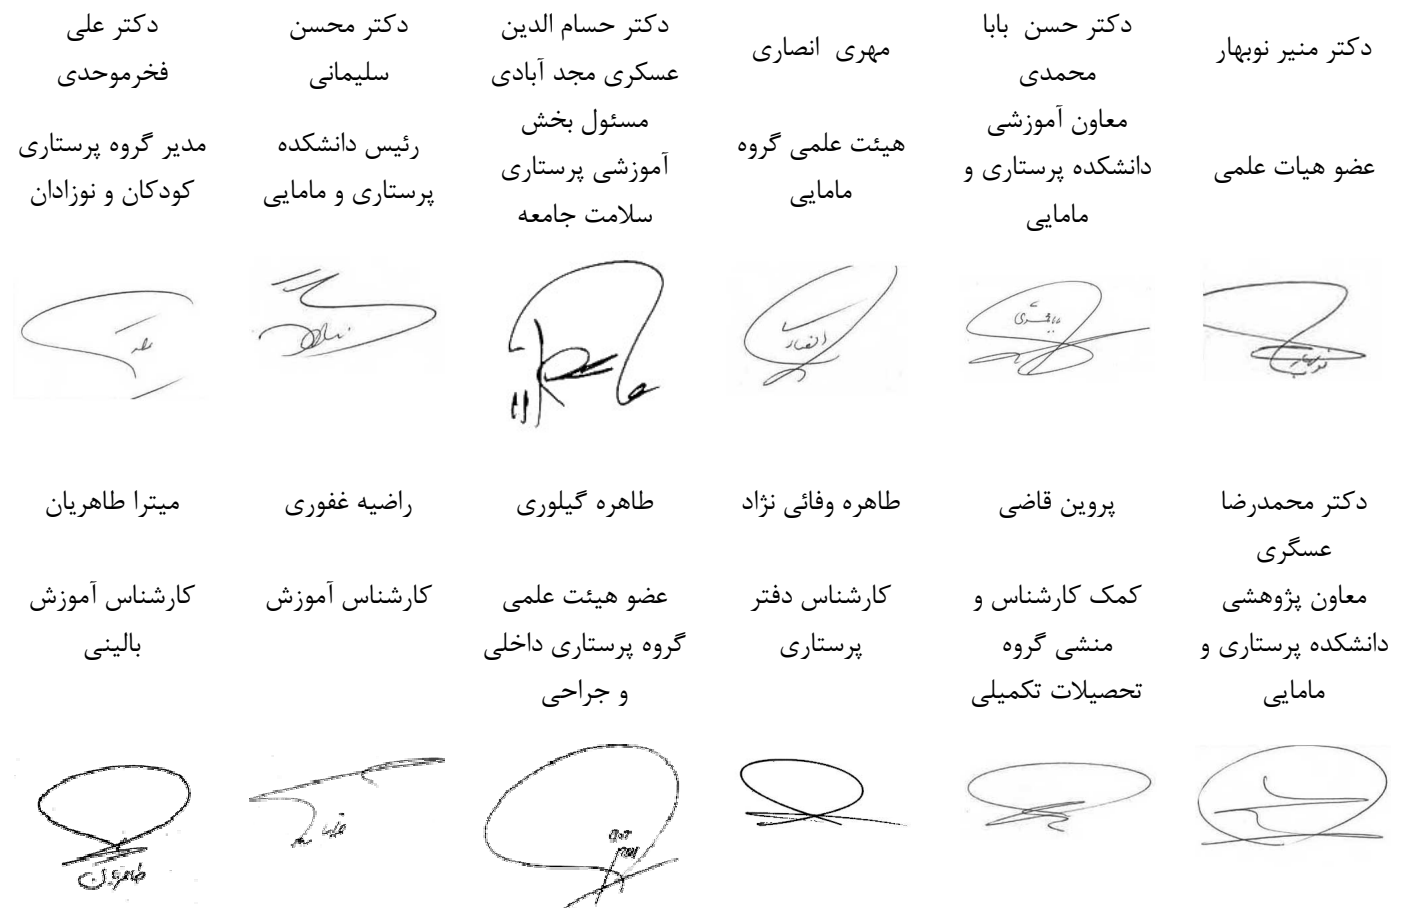 دکتر منیر نوبهار
دکتر حسن بابا
محمدی
مهری انصاری
دکتر حسام الدین
عسکری مجد آبادی
دکتر محسن
سلیمانی
دکتر علی
فخرموحدی
عضو هیات علمی
معاون آموزشی
دانشکده پرستاری و
مامایی
هیئت علمی گروه
مامایی
مسئول بخش
آموزشی پرستاری
سلامت جامعه
رئیس دانشکده
پرستاری و مامایی
مدیر گروه پرستاری
کودکان و نوزادان
دکتر محمدرضا
عسگری
پروین قاضی
طاهره وفائی نژاد
طاهره گیلوری
راضیه غفوری
میترا طاهریان
معاون پژوهشی
دانشکده پرستاری و
مامایی
کمک کارشناس و
منشی گروه
تحصیلات تکمیلی
کارشناس دفتر
پرستاری
عضو هیئت علمی
گروه پرستاری داخلی
و جراحی
کارشناس آموزش
کارشناس آموزش
بالینی
طاهریان